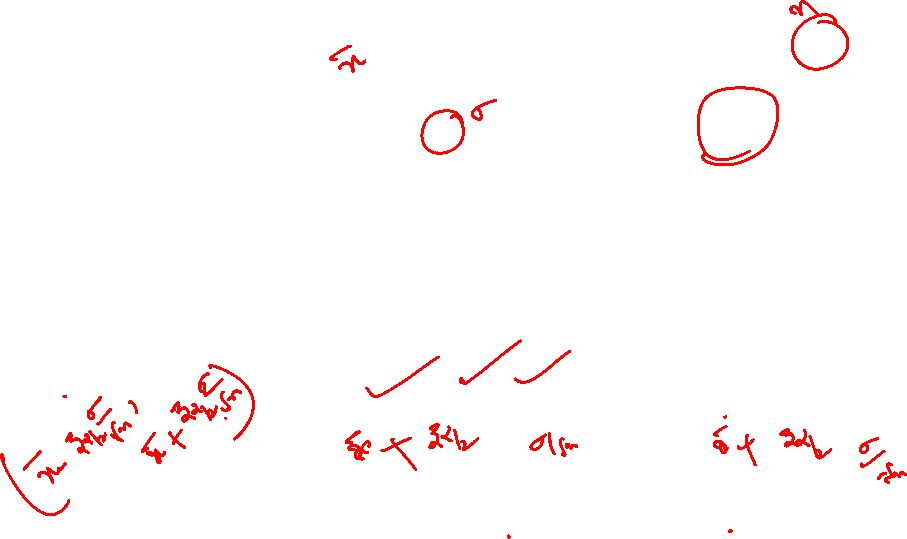 n
x̄
σ
(x̄ - z α/2 σ/√n, x̄ + z α/2 σ/√n)
x̄ + z α/2 σ/√n
x̄ + z α/2 σ/√n